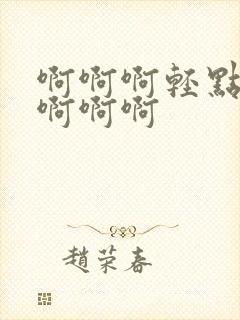 啊啊啊輕點
啊啊啊
趙荣春